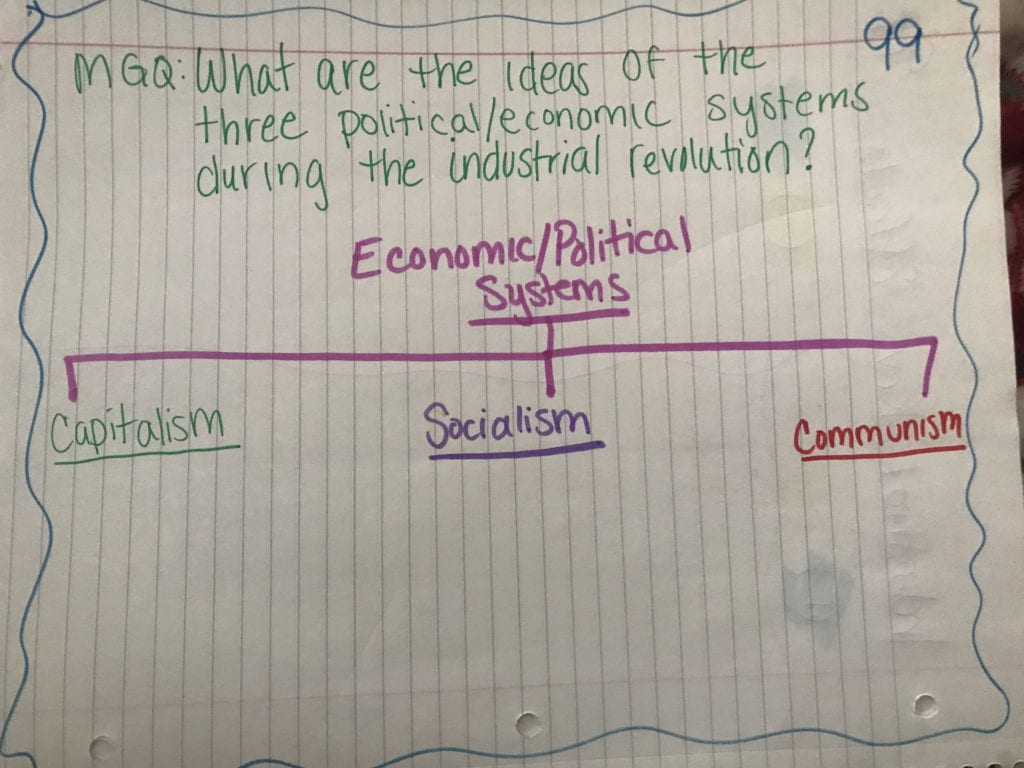 99
MGQ: What are the ideas of the
three political/economic systems
during the industrial revolution?
Economic/Political
Systems
Capitalism
Socialism
Communism